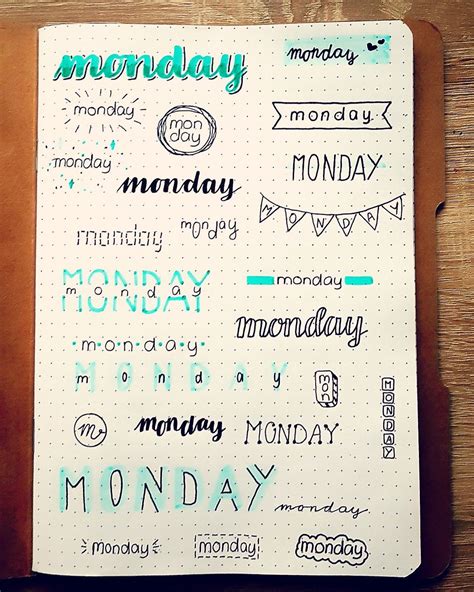 monday
monday
monday
mon
day
monday
monday
MONDAY
monday
MONDAY
monday
monday
MONDAY
monday
monday
monday
monday
MONDAY
monday
mon
MONDAY
m
monday
MONDAY
MONDAY
monday
monday
monday
monday